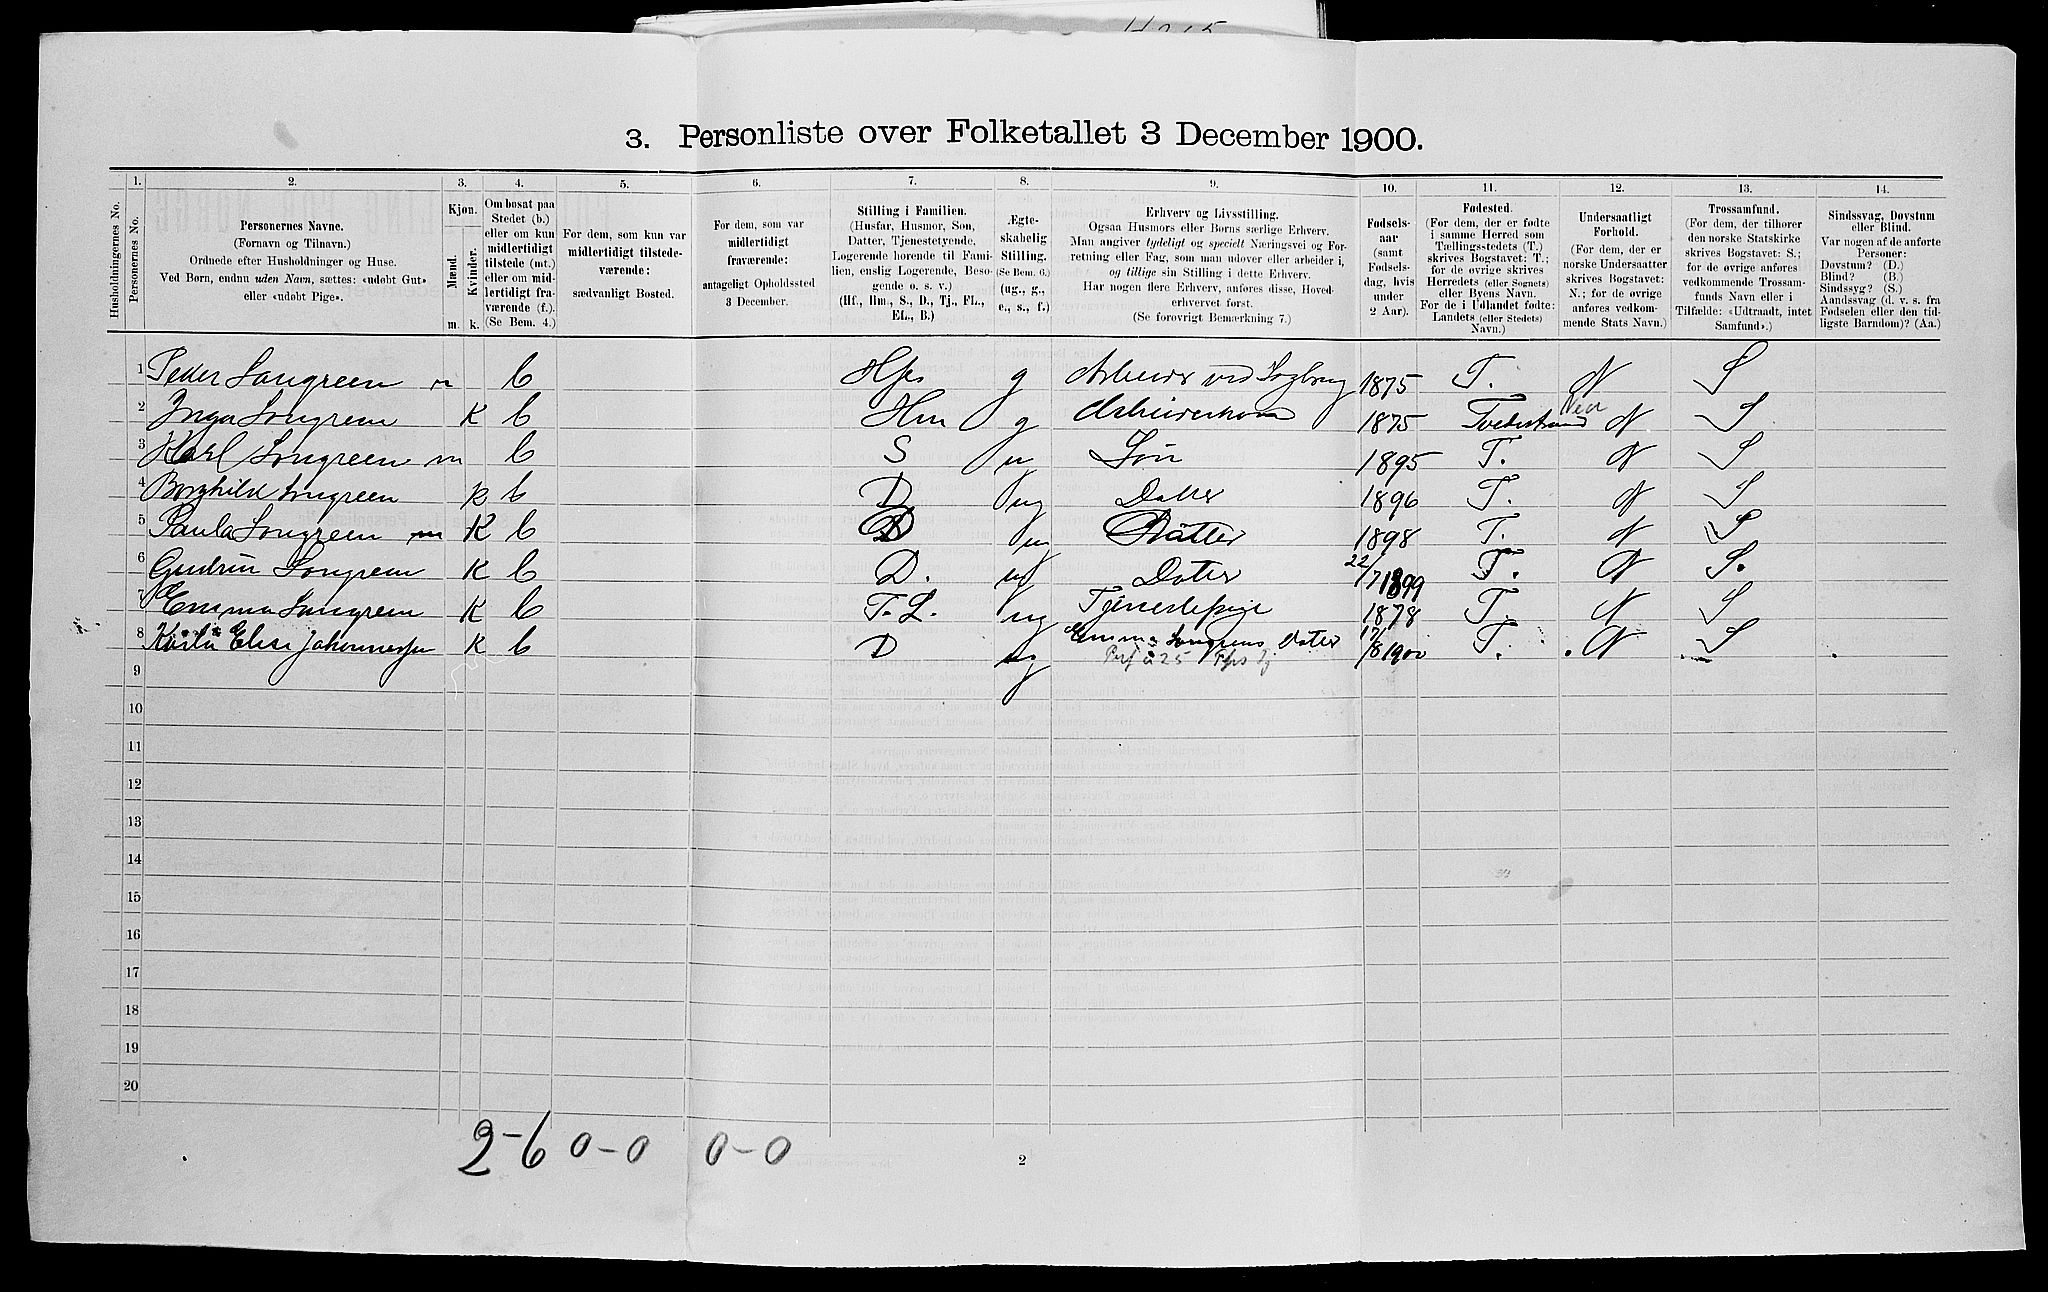 3. Personliste over Folketallet 3 December 1900.
1. 2. 3. 4. 5. 6. 7. 8. 9. 10. 11. 12. 13. 14.
Husholdningernes No.
Personernes No.
Personernes Navne.
(Fornavn og Tilnavn.)
Ordnede efter Husholdninger og Huse.
Ved Børn, endnu uden Navn, sættes: «udøbt Gut»
eller «udøbt Pige».
Kjøn.
Mænd.
Kvinder.
m. k.
Om bosat paa
Stedet (b.)
eller om kun
midlertidigt
tilstede (mt.)
eller om mid-
lertidigt fra-
værende (f.).
(Se Bem. 4.)
For dem, som kun var
midlertidigt tilstede-
værende:
sædvanligt Bosted.
For dem, som var
midlertidigt
fraværende:
antageligt Opholdssted
3 December.
Stilling i Familien.
(Husfar, Husmor, Søn,
Datter, Tjenestetyende,
Logerende hørende til Fami-
lien, enslig Logerende, Besø-
gende o. s. v.)
(Hf., Hm., S., D., Tj., FL.,
EL., B.)
Ægte-
skabelig
Stilling.
(Se Bem. 6.)
(ug., g.,
e., s., f.)
Erhverv og Livsstilling.
Ogsaa Husmors eller Børns særlige Erhverv.
Man angiver tydeligt og specielt Næringsvei og For-
retning eller Fag, som man udøver eller arbeider i,
og tillige sin Stilling i dette Erhverv.
Har nogen flere Erhverv, anføres disse, Hoved-
erhvervet først.
(Se forøvrigt Bemærkning 7.)
Fødsels-
aar
(samt
Fødsels-
dag, hvis
under
2 Aar).
Fødested.
(For dem, der er fødte
i samme Herred som
Tællingsstedets (T.)
skrives Bogstavet: T.;
for de øvrige skrives
Herredets (eller Sognets)
eller Byens Navn.
For de i Udlandet fødte:
Landets (eller Stedets)
Navn.)
Undersaatligt
Forhold.
(For dem, der er
norske Undersaatter
skrives Bogstavet:
N.; for de øvrige
anføres vedkom-
mende Stats Navn.)
Trossamfund.
(For dem, der tilhører
den norske Statskirke
skrives Bogstavet: S.;
for de øvrige anføres
vedkommende Trossam-
funds Navn eller i
Tilfælde: «Udtraadt, intet
Samfund».)
Sindssvag, Døvstum
eller Blind.
Var nogen af de anførte
Personer:
Døvstum? (D.)
Blind? (B.)
Sindssyg? (S.)
Aandssvag (d. v. s. fra
Fødselen eller den tid-
ligste Barndom)? (Aa.)
1 Peder Songreen m b g Arbeider ved 1875 T. N S
2 Inga Songreen K b Hm g 1875 Tvedestrand N S
3 Karl Songreen m b S u Søn 1895 T. N S
4 Borghild Songreen k b D ug Datter 1896 T. N S
5 Paula Songreen K b D ug Datter 1898 T. N S
6 Gudrun Songreen K b D. ug Dater 22/7 1899 T. N S.
7 Emma Songreen K b T. L. ug Tjenestepige 1878 T. N S
8 Elise Johannesen K b D ug Emma Songrens Dater 17/8 1900 T. N S
9
10
11
12
13
14
15
16
17
18
19
20
2-6 0-0 0-0
2